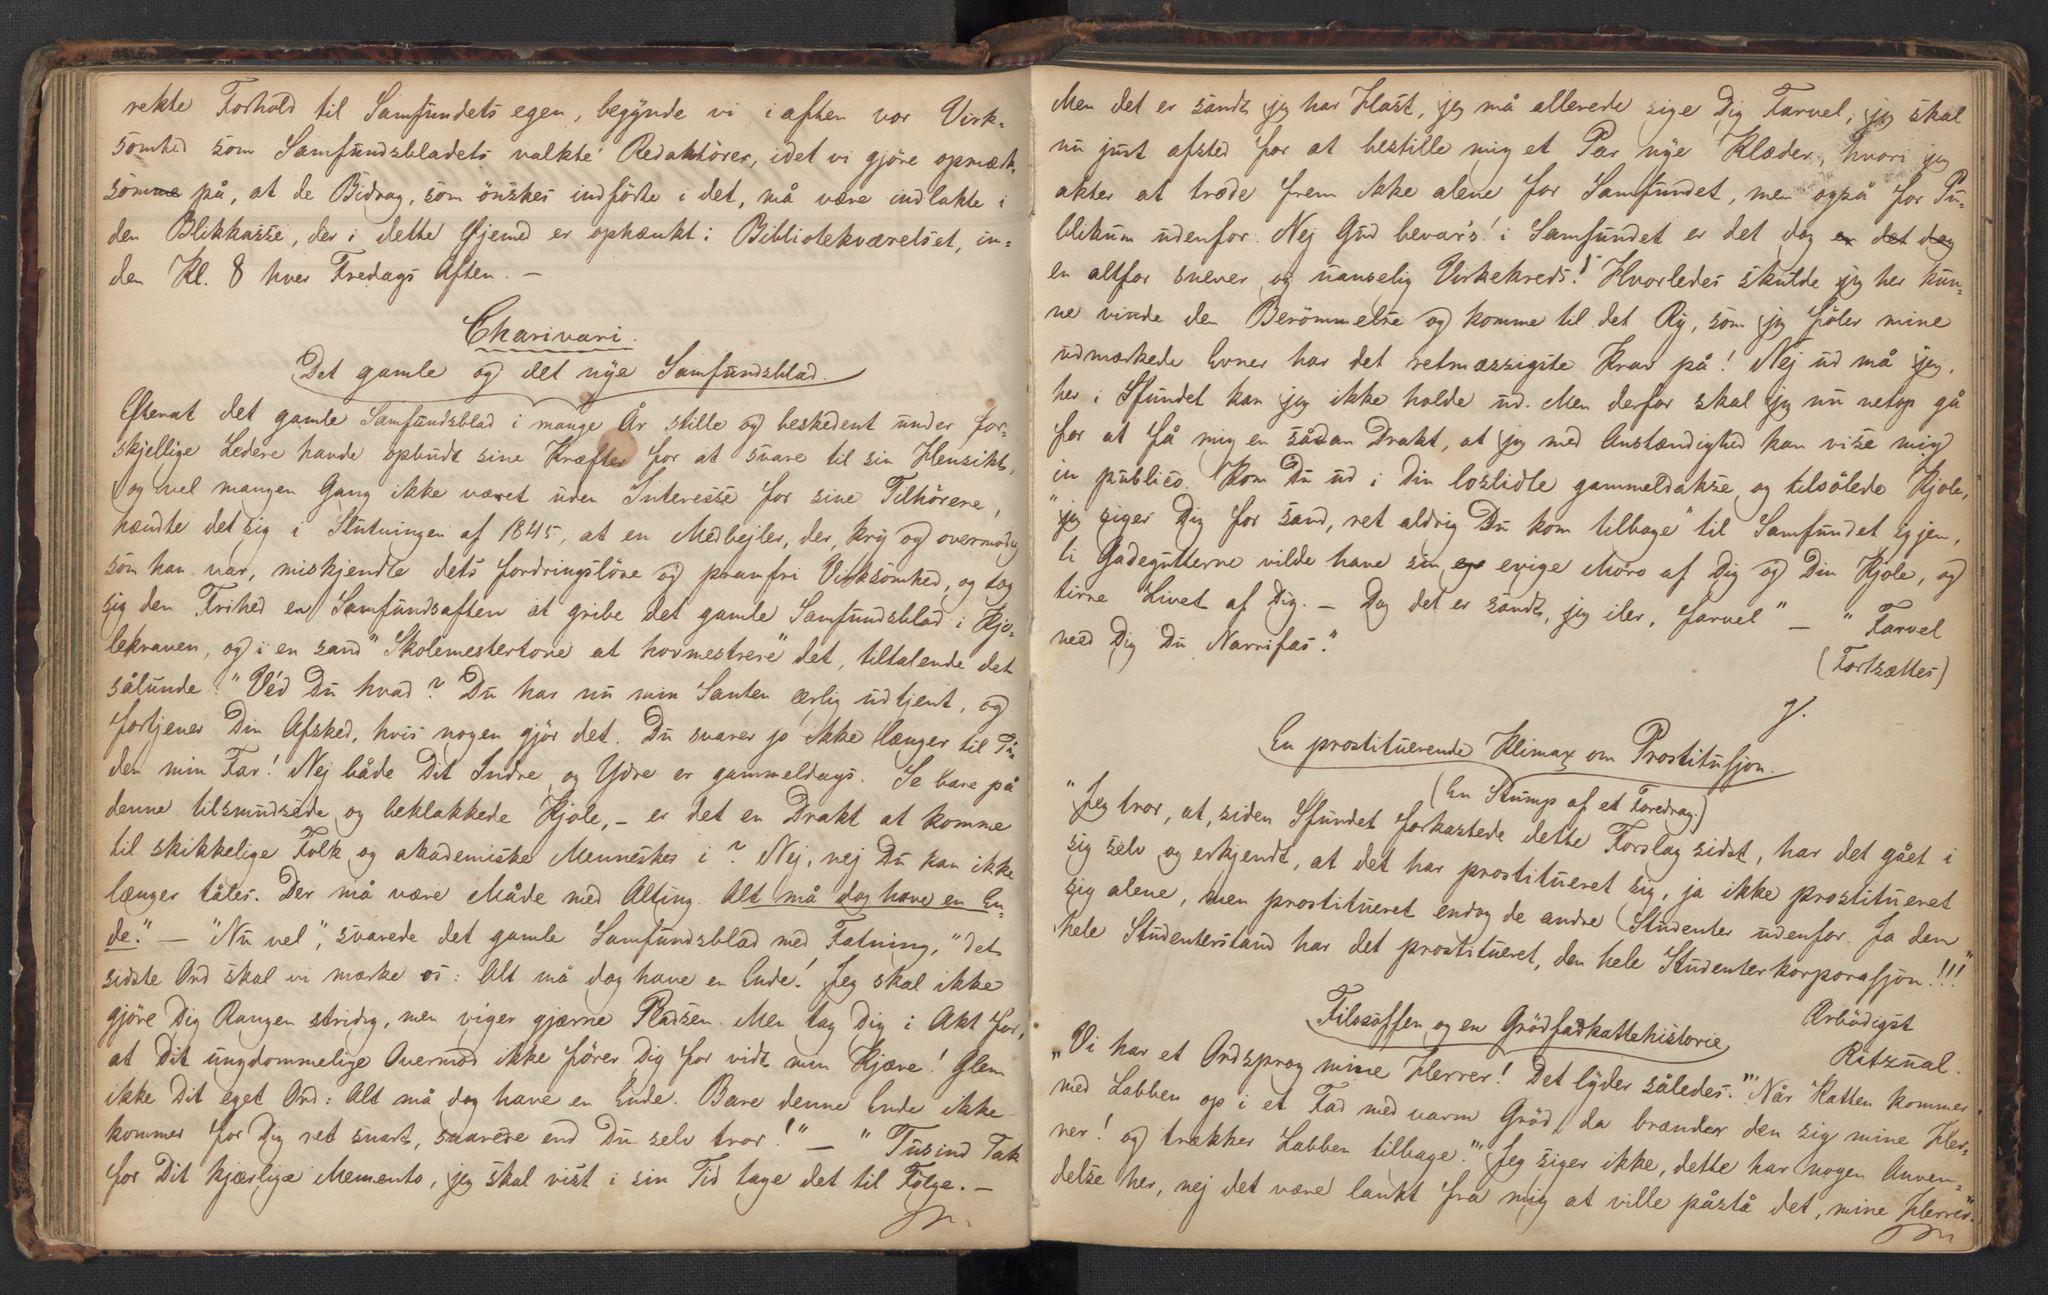 rekte Forhold til Samfundets egen, begynde vi i aften vor Virk-
somhed som Samfundsbladets valkte Redaktörer, idet vi gjöre opmærk-
somme på, at de Bidrag, som önskes indförte i det, må være indlakte i
den Blikkasse, der i dette Öjemed er ophænkt i Bibliotekværelset, in-
den Kl. 8 hver Fredags Aften. —
Charivari.
Det gamle og det nye Samfundsblad.
Efterat det gamle Samfundsblad i mange År stille og beskedent under for-
skjellige Ledere havde opbudt sine Kræfter for at svare til sin Hensikt,
og vel mangen Gang ikke været uden Interesse for sine Tilhörere,
hændte det sig i Slutningen af 1845, at en Medbejler, der, kry og overmodig
som han var, miskjendte dets fordringslöse og pramfri Virksomhed, og tog
sig den Frihed en Samfundsaften at gribe det gamle Samfundsblad i Kjo-
lekraven, og i en sand "Skolemestertone at hovmestrere" det, tiltalende det
sålunde: "Véd Du hvad? Du har nu min Santen ærlig udtjent, og
fortjener Din Afsked, hvis nogen gjör det. Du svarer jo ikke længer til Ti-
den min Far! Nej både Dit Indre og Ydre er gammeldags. Se bare på
denne tilsmudsede og beklakkede Kjole, — er det en Drakt at komme
til skikkelige Folk og akademiske Menneskes i? Nej, nej Du kan ikke
længer tåles. Der må være Måde med Alting. Alt må dog have en En-
de." — "Nu vel", svarede det gamle Samfundsblad med Fatning, "det
sidste Ord skal vi mærke os: Alt må dog have en Ende! Jeg skal ikke
gjöre Dig Rangen stridig, men viger gjærne Pladsen. Men tag Dig i Akt for,
at Dit ungdommelige Overmod ikke förer Dig for vidt min Kjære! Glem
ikke Dit eget Ord: Alt må dog have en Ende. Bare denne Ende ikke
kommer for Dig ret snart, snarere end Du selv tror!" — "Tusind Tak
for Dit kjærlige Memento, jeg skal vist i sin Tid tage det til Fölge. —
Men det er sandt jeg har Hast, jeg må allerede sige Dig Farvel, jeg skal
nu just afsted for at bestille mig et Par nye Klæder, hvori jeg
akter at træde frem ikke alene for Samfundet, men også for Pu-
blikum udenfor. Nej Gud bevar's! i Samfundet er det dog er det dog
en altfor snever og uanselig Virkekreds! Hvorledes skulde jeg her kun-
ne vinde den Berömmelse og komme til det Ry, som jeg föler mine
udmærkede Evner har det retmæssigste Krav på! Nej ud må jeg,
her i Sfundet kan jeg ikke holde ud. Men derfor skal jeg nu netop gå
for at få mig en sådan Drakt, at jeg med Anstændighed kan vise mig
in publico. Kom Du ud i Din loslidte gammeldakse og tilsölede Kjole,
"jeg siger Dig for sand, ret aldrig Du kom tilbage" til Samfundet igjen,
ti Gadegutterne vilde have sin eg evige Moro af Dig og Din Kjole, og
tirre Livet af Dig. — Dog det er sandt, jeg iler, farvel" — "Farvel
med Dig Du Narrifas."
(Fortsættes)
En prostituerende Klimax om Prostitusjon.
(En Stump af et Foredrag.)
"Jeg tror, at, siden Sfundet forkastede dette Forslag sidst, har det gået i
sig selv og erkjendt, at det har prostitueret sig, ja ikke prostitueret
sig alene, men prostitueret endog de andre Studenter udenfor. Ja den
hele Studenterstand har det prostitueret, den hele Studenterkorporasjon!!!"
Ærbödigst
Ritzual.
Filosoffen og en Grödfadkattehistorie
"Vi har et Ordsprog mine Herrer! Det lyder således: "Når Katten kommer
med Labben op i et Fad med varm Gröd, da brænder den sig mine Her-
rer! og trækker Labben tilbage." Jeg siger ikke, dette har nogen Anven-
delse her, nej det være lankt fra mig at ville påstå det, mine Herrer"